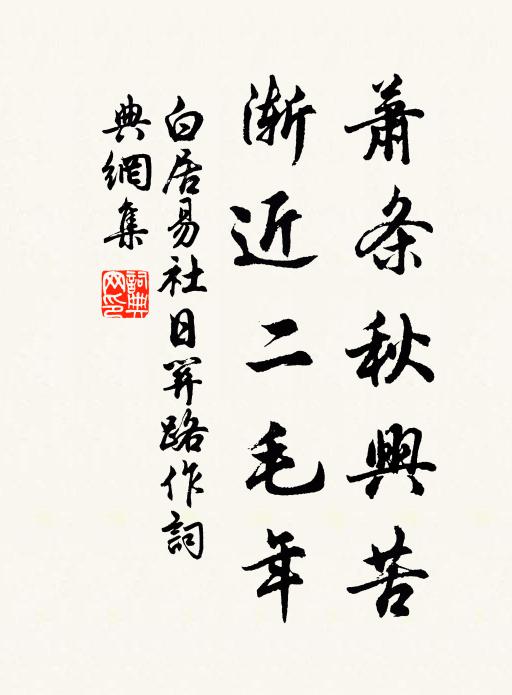 蕭条秋興苦
漸近二毛年
白居易社日関路作詞
典網集
詞典網印